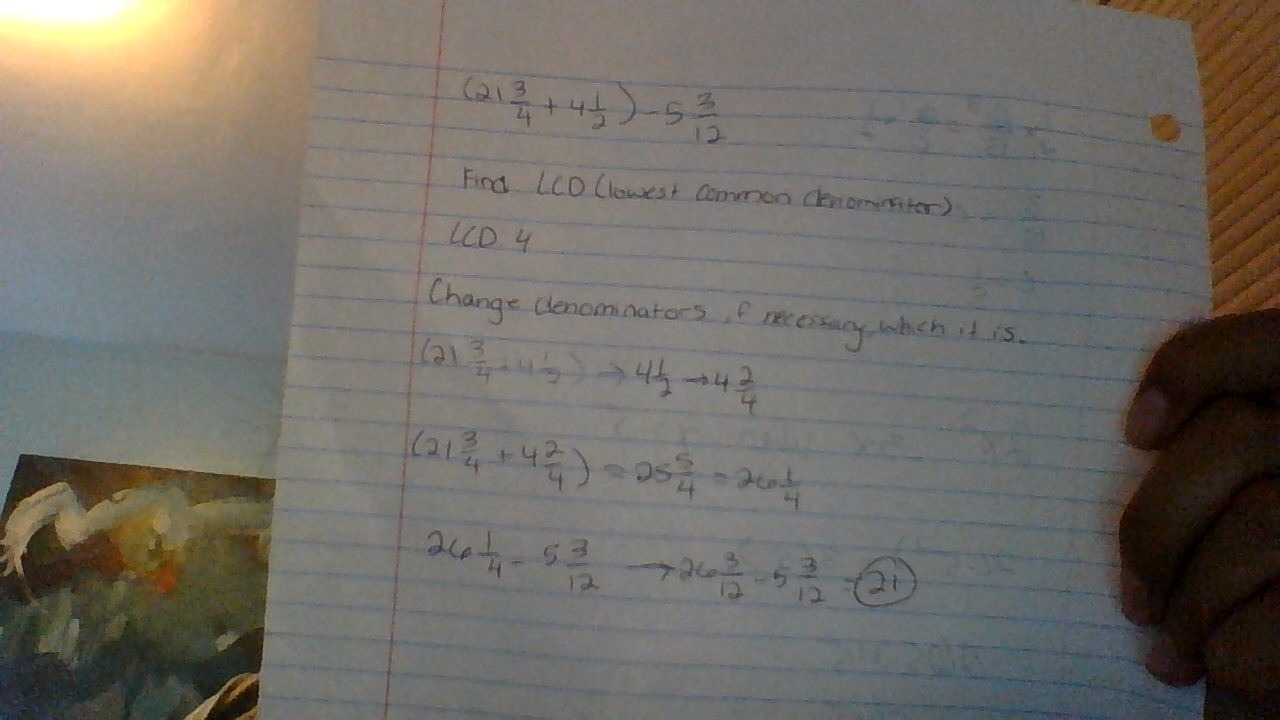 (21 3/4 + 4 1/2) - 5 3/12
Find LCD (lowest common denominator)
LCD 4
Change denominators if necessary, which it is.
(21 3/4 + 4 1/2) → 4 1/2 → 4 2/4
(21 3/4 + 4 2/4) = 25 5/4 = 26 1/4
26 1/4 - 5 3/12 → 26 3/12 - 5 3/12 = 21